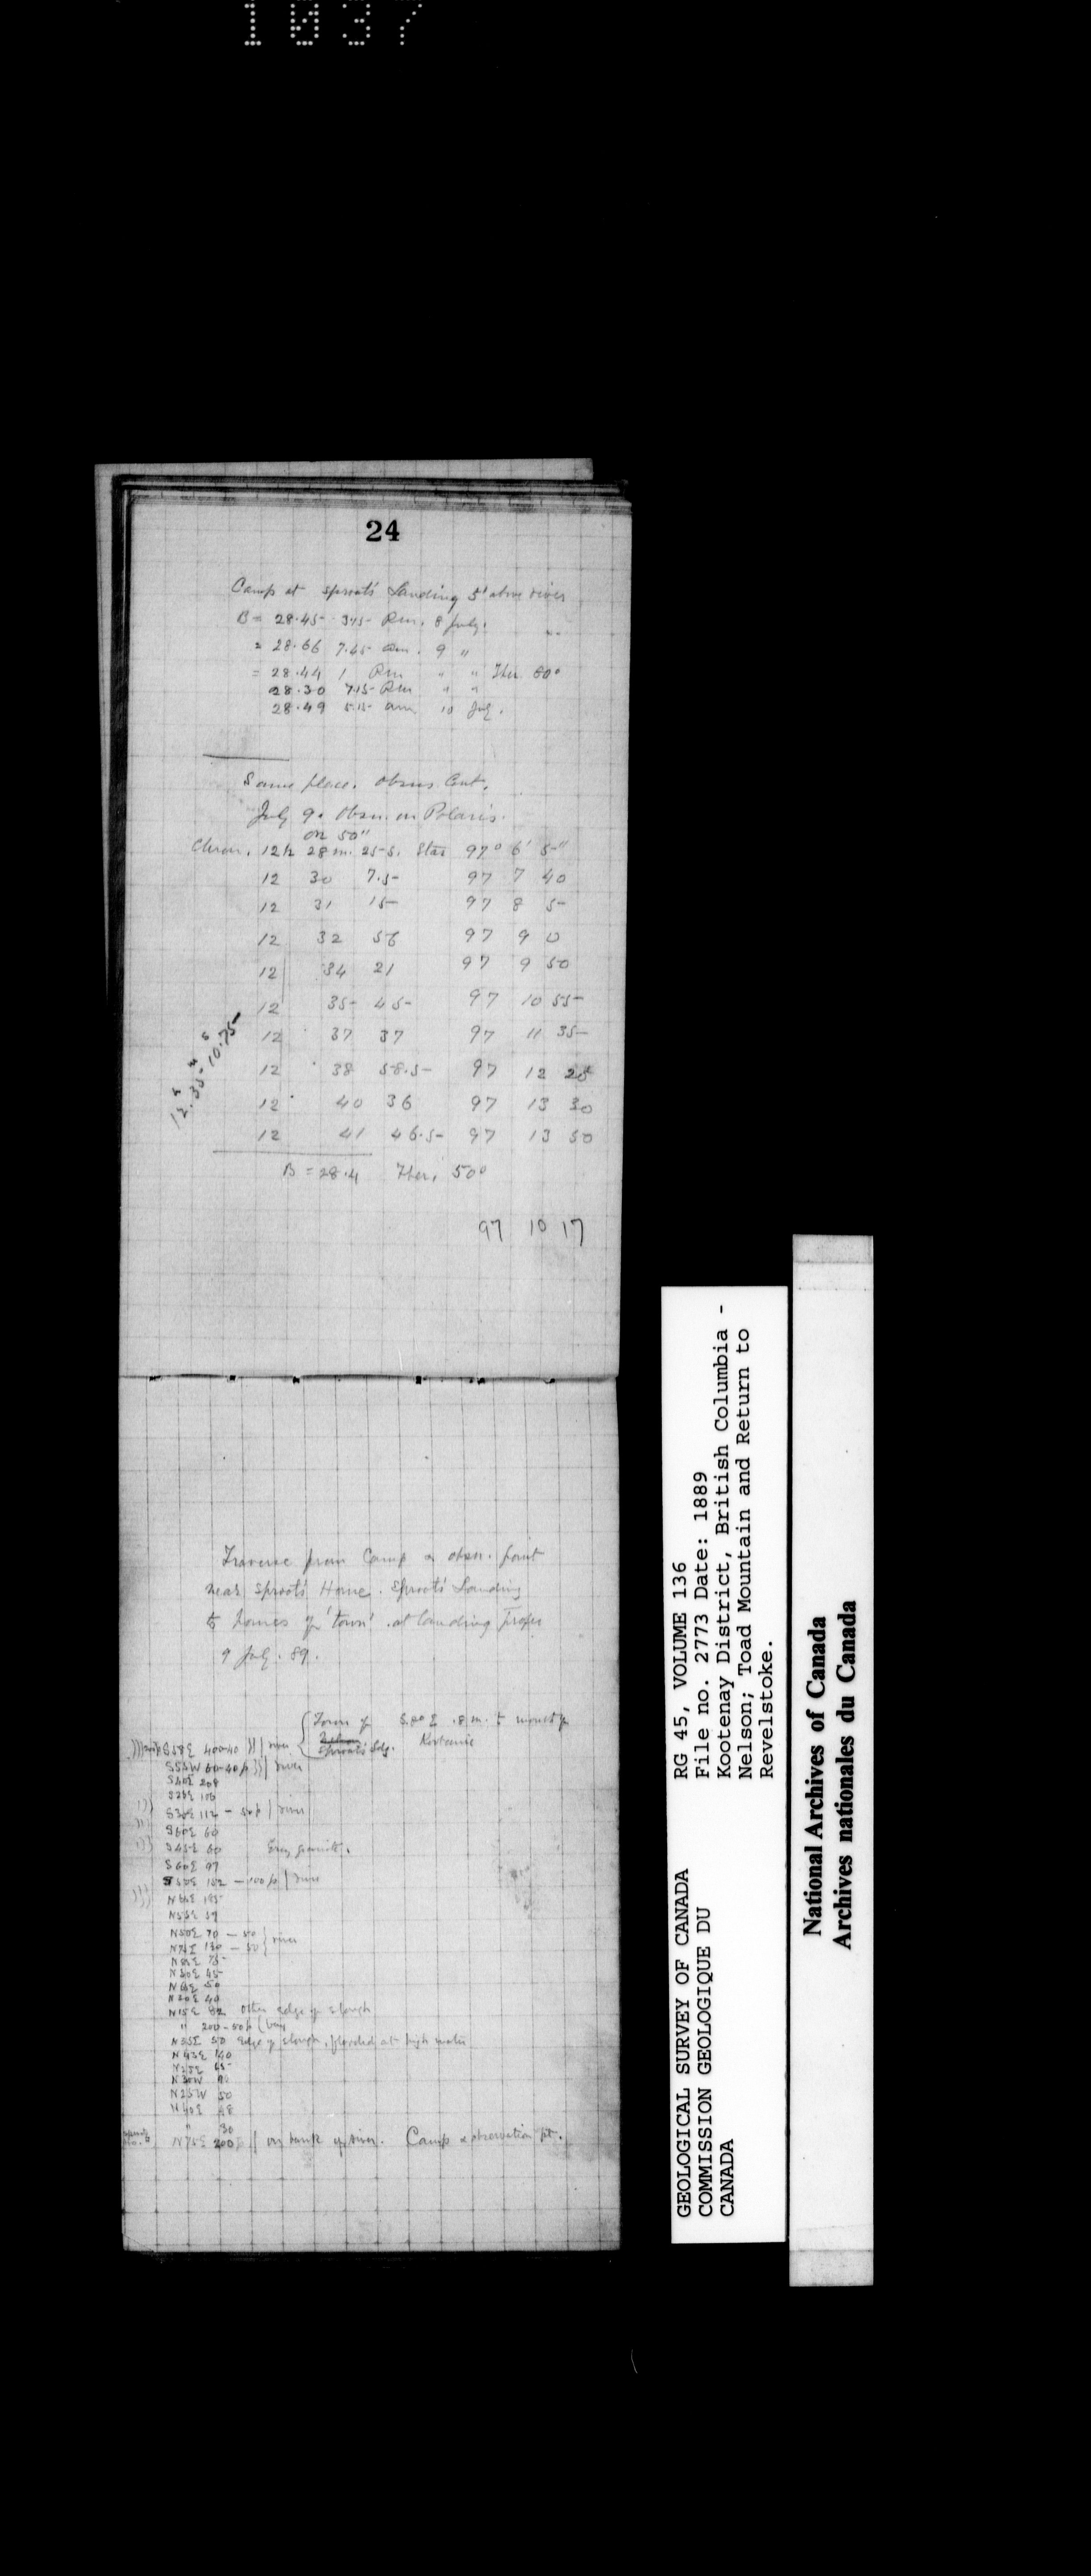 1037
24
Camp at Sproat's Landing 5' above river
B = 28.45 3.45 P.m. 8 July.
= 28.66 7.45 am. 9 "
= 28.44 1 P.m " " Ther. 80°
28.30 7.45 P.m " "
28.49 5.15 am 10 July.
Same place. Obsns Cont.
July 9. Obsn. on Polaris.
on 50"
Chron. 12h 28m. 25.5s. Star 97° 6' 5"
12 30 7.5 97 7 40
12 31 15 97 8 5
12 32 56 97 9 0
12 34 21 97 9 50
12 35 45 97 10 55
12 37 37 97 11 35
12 38 58.5 97 12 25
12 40 36 97 13 30
12 41 46.5 97 13 50
12h. 35m. 10.75s
B = 28.4 Ther. 50°
97 10 17
Traverse from Camp & obsn. point
near Sproat's House. Sproat's Landing
to houses of 'town' at Landing Proper
9 July. 89.
Town of S.80E .8 m. to mouth of
Sproat's Ldg. Kootanie
S58E 400-40 river
S55W 60-40p river
S40E 208
S25E 106
S30E 112 - 50p river
S60E 60
S45E 60 Grey granite.
S60E 97
S80E 152 - 100p river
N55E 59
N50E 70 - 50
N75E 130 - 50 river
N50E 45
N20E 40
N15E 82 Other edge of slough
" 200-50p (bay
N55E 50 Edge of slough, flooded at high water
N45E 140
N30W 90
N25W 50
N40E 48
" 30
N75E 200p on bank of river. Camp & observation pt.
GEOLOGICAL SURVEY OF CANADA
COMMISSION GEOLOGIQUE DU
CANADA
RG 45, VOLUME 136
File no. 2773 Date: 1889
Kootenay District, British Columbia -
Nelson; Toad Mountain and Return to
Revelstoke.
National Archives of Canada
Archives nationales du Canada